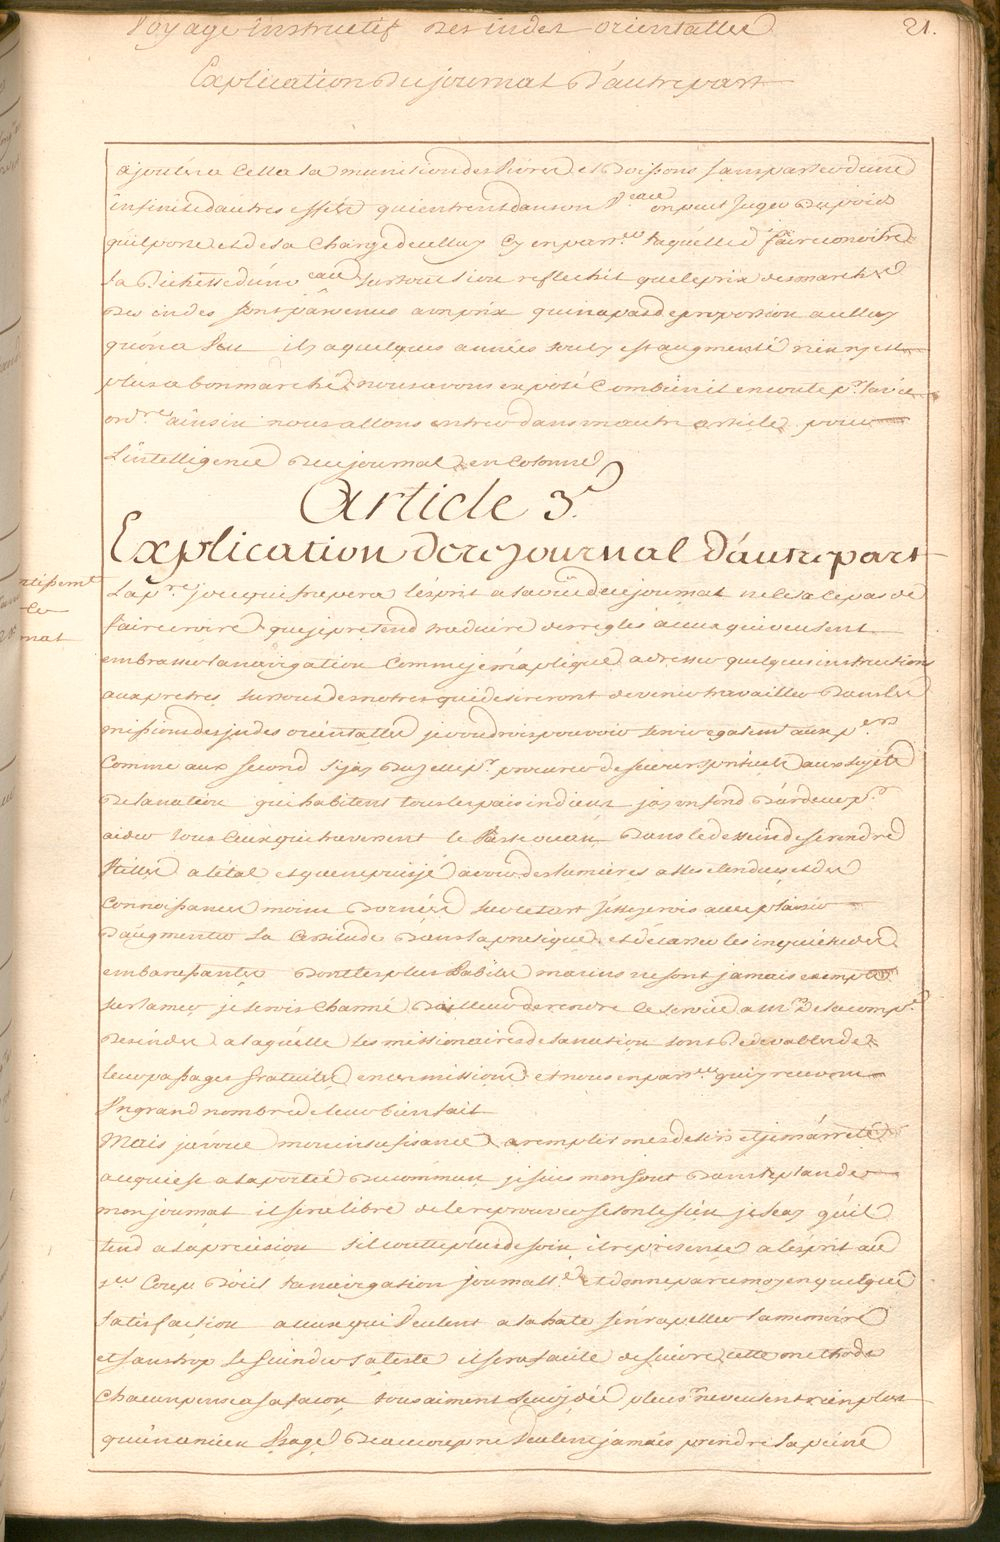 Voyage instructif des indes orientalles
21.
Explication du journal d'autre part
ajoutéz a cella la munition des vivres et boissons sans parler d'une
infinité d'autres effets qui entrent dans un v.eau on peut juger du poids
qu'il porte et de la charge de celluy cy en par.er laquelle d fait conoitre
la Richesse d'un v.eau surtout si on reflechit que le prix des marches
des indes sont parvenus a un prix qui n'a pas de proportion a celluy
qu'on a veu il y a quelques années tout y est augmenté rien n'y est
plus a bon marché nous avons exposé combien il en coute p.r
ord.re ainsin nous allons entrer dans un autre article pour
L'intelligence du journal en colonne
Article 3.e
Explication de ce journal d'autre part
La p.re joye qui frapera l'esprit a la vüe de ce journal ne lesse pas de
faire croire que je pretend traduire des regles a ceux qui veulent
embrasser la navigation comme je m'aplique a dresser quelques instructions
aux pretres surtout des notres qui desireront devenir travailler dans les
missions des jndes orientalles je voudrois pouvoir servir egalem.t aux p.ers
comme aux second si j'ay du zelle p.r procurer de secours spirituels aux sujets
de la nation qui habitent tous les pais indiens j'ay un fond d'ardeur p.r
aider tous ceux qui traversent le vaste ocean dans le dessein de se rendre
utilles a l'état et que ne puis je avoir des lumieres asses etendues et des
connoissances moins bornées sur cet art j'esseyerois avec plaisir
d'augmenter la certitude dans la pratique et d'écarter les inquietudes
embarassantes dont les plus habiles marins ne sont jamais exempts
sur la mer je serois charmé d'ailleurs de rendre ce service a m.rs de la comp.e
des indes a laquelle les missionaires de la nation sont redevables de
leur passages gratuites en ces missions et nous en par.er qui y recevons
un grand nombre de leur bienfait
Mais j'avoue mon insufisance a remplir mes desirs et je m'arrette
a ce qui est a la portée du commun je suis mon gout dans le plan de
mon journal il sera libre de le reprouver selon le sien je sçay qu'il
tend a la precision s'il coutte plus de soin il represente a l'esprit au
1.er coup d'oeil la navigation journall.e et donne par ce moyen quelque
satisfaction a ceux qui veulent a la hate s'en rapeller la memoire
et sans trop se guinder la teste il sera facile de suivre cette methode
chacun pense a sa facon tous aiment leur jdée plus.rs ne veulent rien plus
qu'un ancien usage beaucoup ne veulent jamais prendre la peine